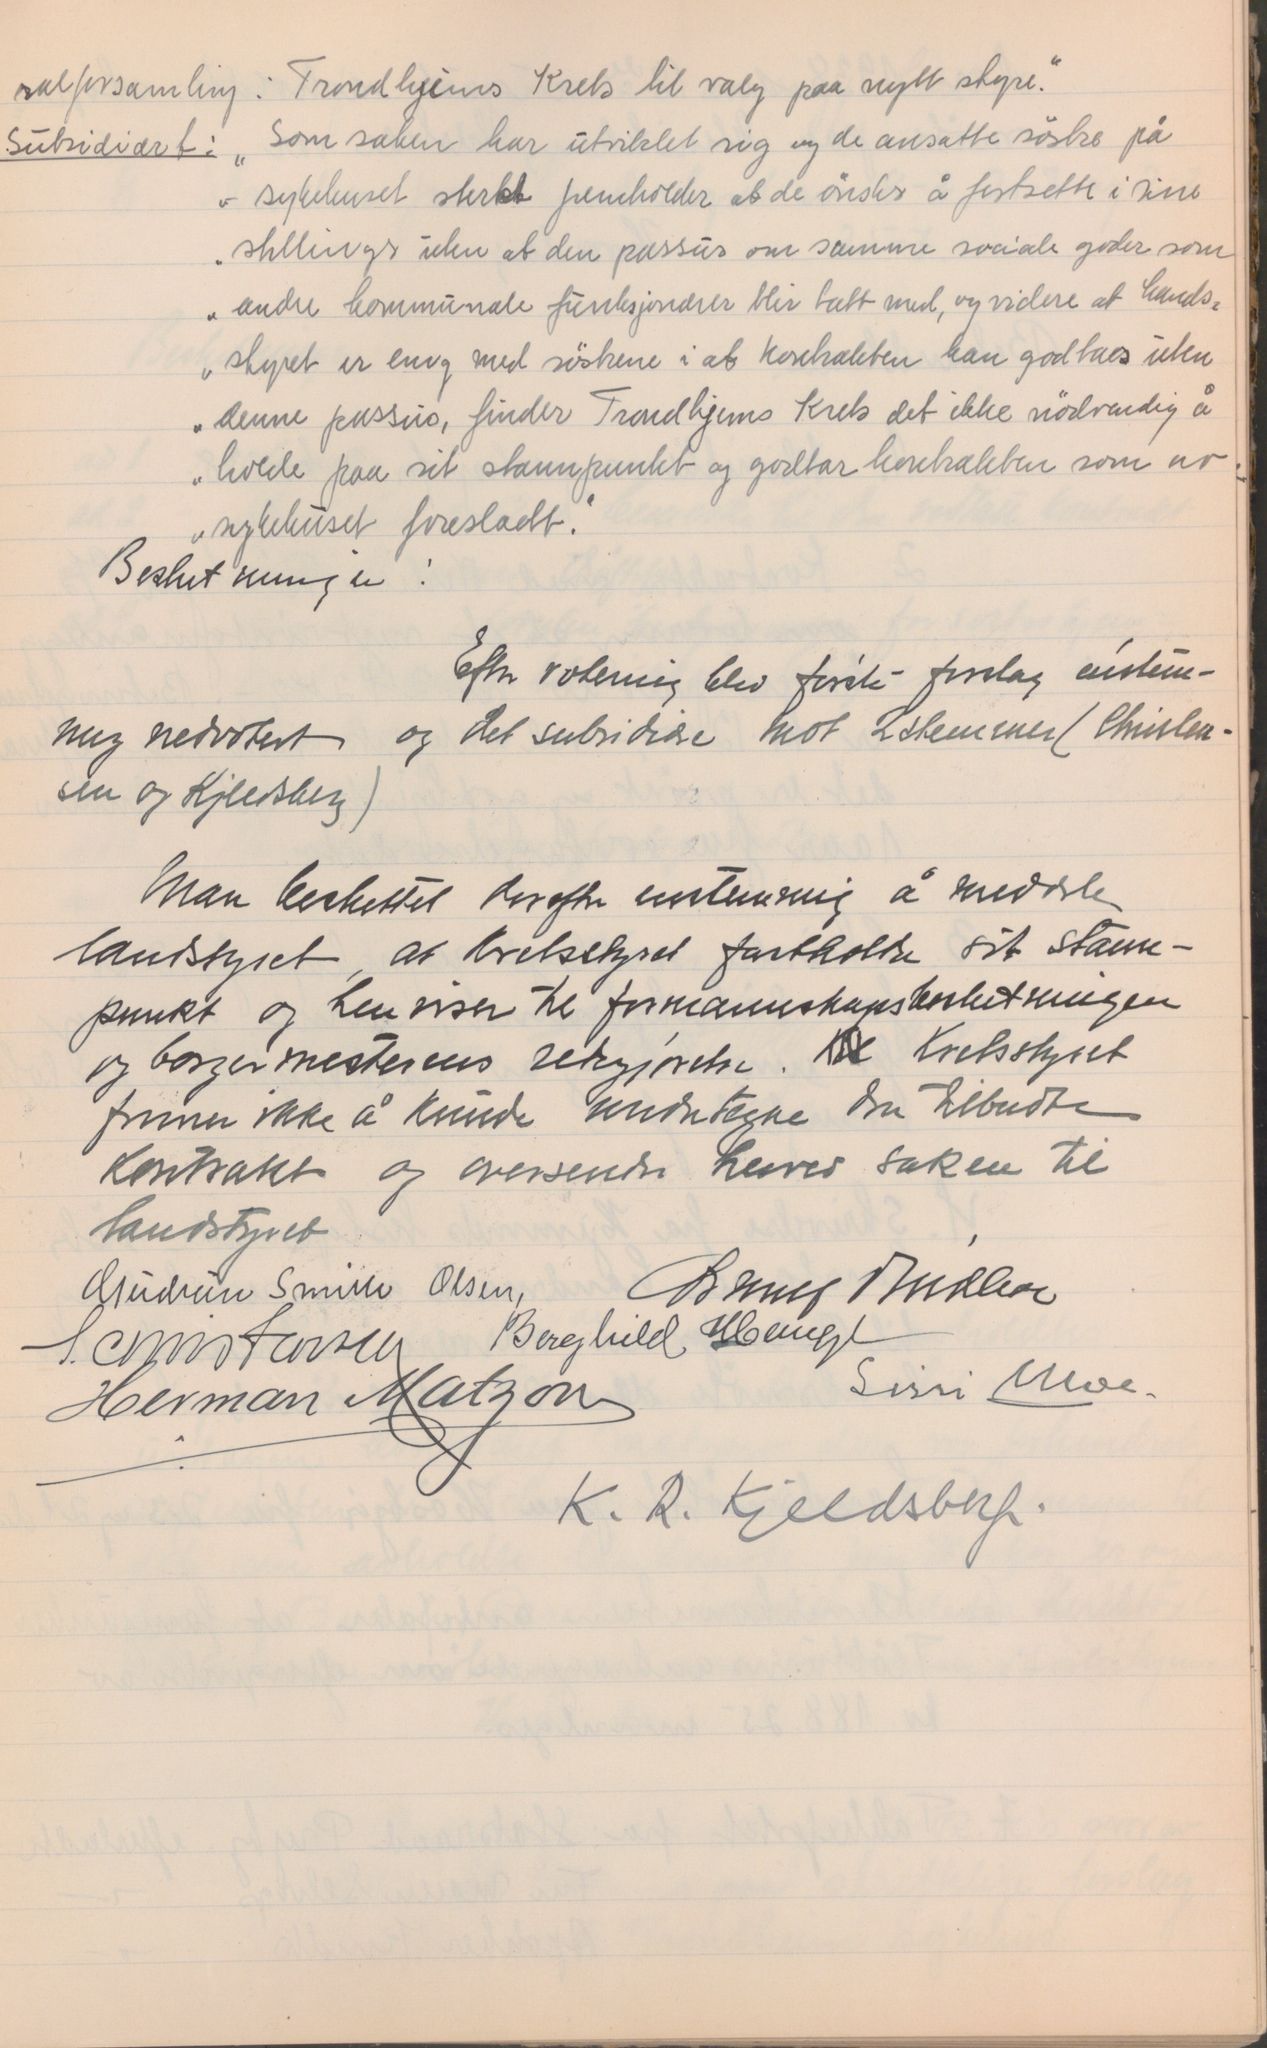 ralforsamling i Trondhjems Krets til valg paa nytt styre."
Subsidiært: „Som saken har utviklet sig og de ansatte söstre på
„ sykehuset sterkt fremholder at de önsker å fortsette i sine
„ stillinger uten at den passus om samme sociale goder som
„ andre kommunale funksjonærer blir tatt med, og videre at lands=
„ styret er enig med söstrene i at kontrakten kan godtaes uten
„ denne passus, finder Trondhjems Krets det ikke nödvendig å
„ holde paa sit stannpunkt og godtar kontrakten som av
„ sykehuset foreslaatt."
Beslutningen :
Efter votering blev förste forslag enstem-
mig nedvotert og det subsidiære mot 2 stemmer (Christen-
sen og Kjeldsberg)
Man besluttet derefter enstemmig å meddele
landstyret, at kretsstyret fastholder sit stann-
punkt og henviser til formannskapsbeslutningen
og borgermesterens redegjörelse. Kretsstyret
finner ikke å kunde undertegne den tilbudte
kontrakt og oversender herved saken til
landstyret
Gudrun Smith Olsen,
S. Christensen Borghild Hauge
Herman Matzon Sissi Moe.
K. R. Kjeldsberg.